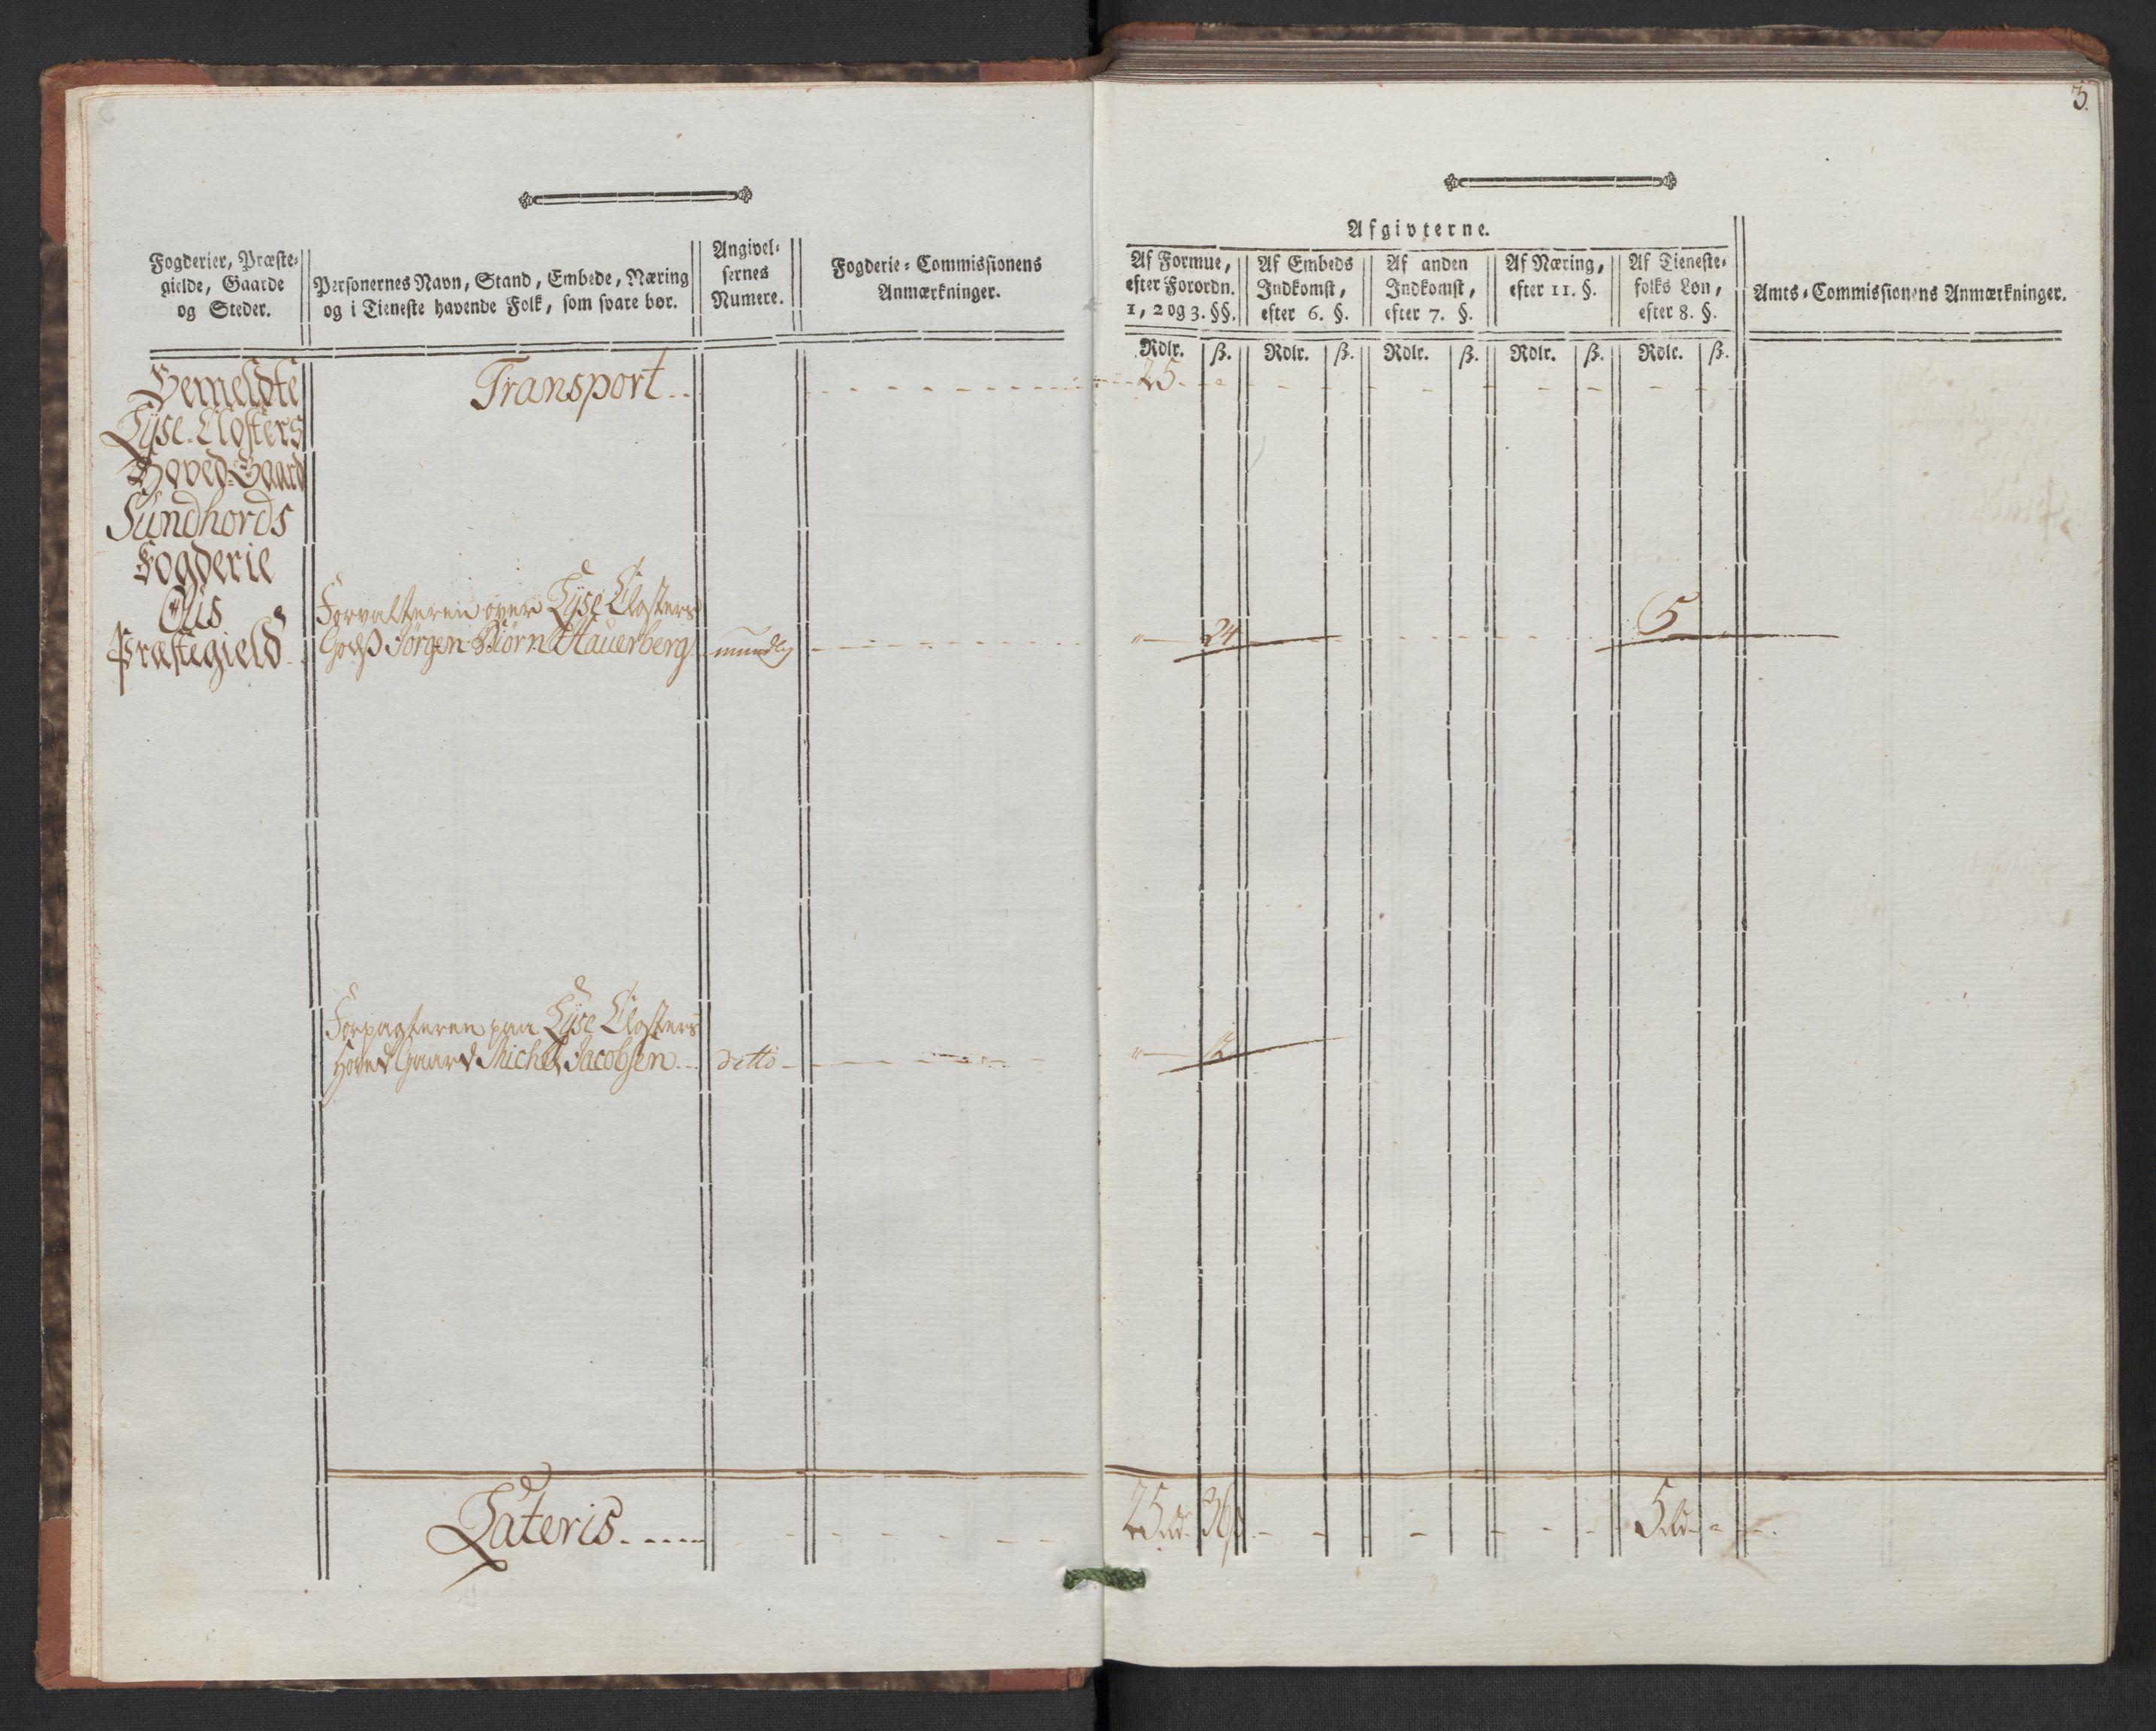 3.
Fogderier, Præste-
gielde, Gaarde
og Steder.
Personernes Navn, Stand, Embede, Næring
og i Tieneste havende Folk, som svare bør.
Angivel-
sernes
Numere.
Fogderie-Commissionens
Anmærkninger.
Afgivterne.
Af Formue,
efter Forordn.
1, 2 og 3. §§.
Af Embeds
Indkomst,
efter 6. §.
Af anden
Indkomst,
efter 7. §.
Af Næring,
efter 11. §.
Af Tieneste-
folks Løn,
efter 8. §.
Amts-Commissionens Anmærkninger.
Rdlr. ß. Rdlr. ß. Rdlr. ß. Rdlr. ß. Rdlr. ß.
Bemeldte
Lyse-Closters
Hoved-Gaard
Sundhords
Fogderie
Ous
Præstegield
Transport .. 25. -
Forvalteren over Lyse Closters
Godß Jørgen Biørn Hauerberg mundlig " 24 5
Forpagteren paa Lyse Closters
Hoved Gaard Michel Jacobsen ... ditto " 12
Lateris. ..... 25 rdr 36 ß 5 rdr